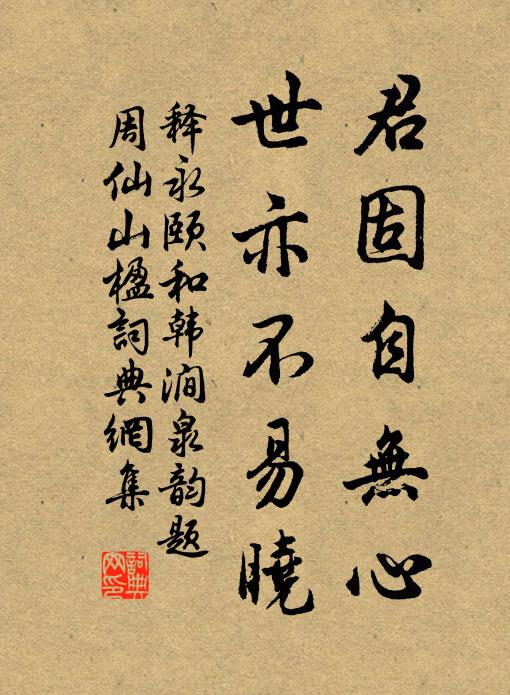 君固自無心
世亦不易曉
释永颐和韩涧泉韵题
周仙山楹詞典網集
詞典網印